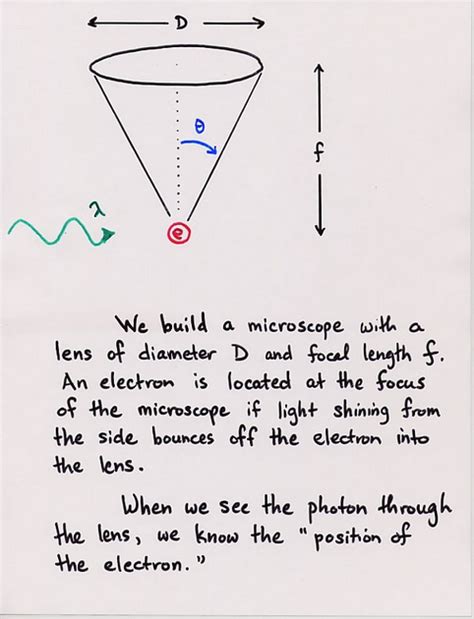 D
θ
f
λ
e
We build a microscope with a
lens of diameter D and focal length f.
An electron is located at the focus
of the microscope if light shining from
the side bounces off the electron into
the lens.
When we see the photon through
the lens, we know the "position of
the electron."